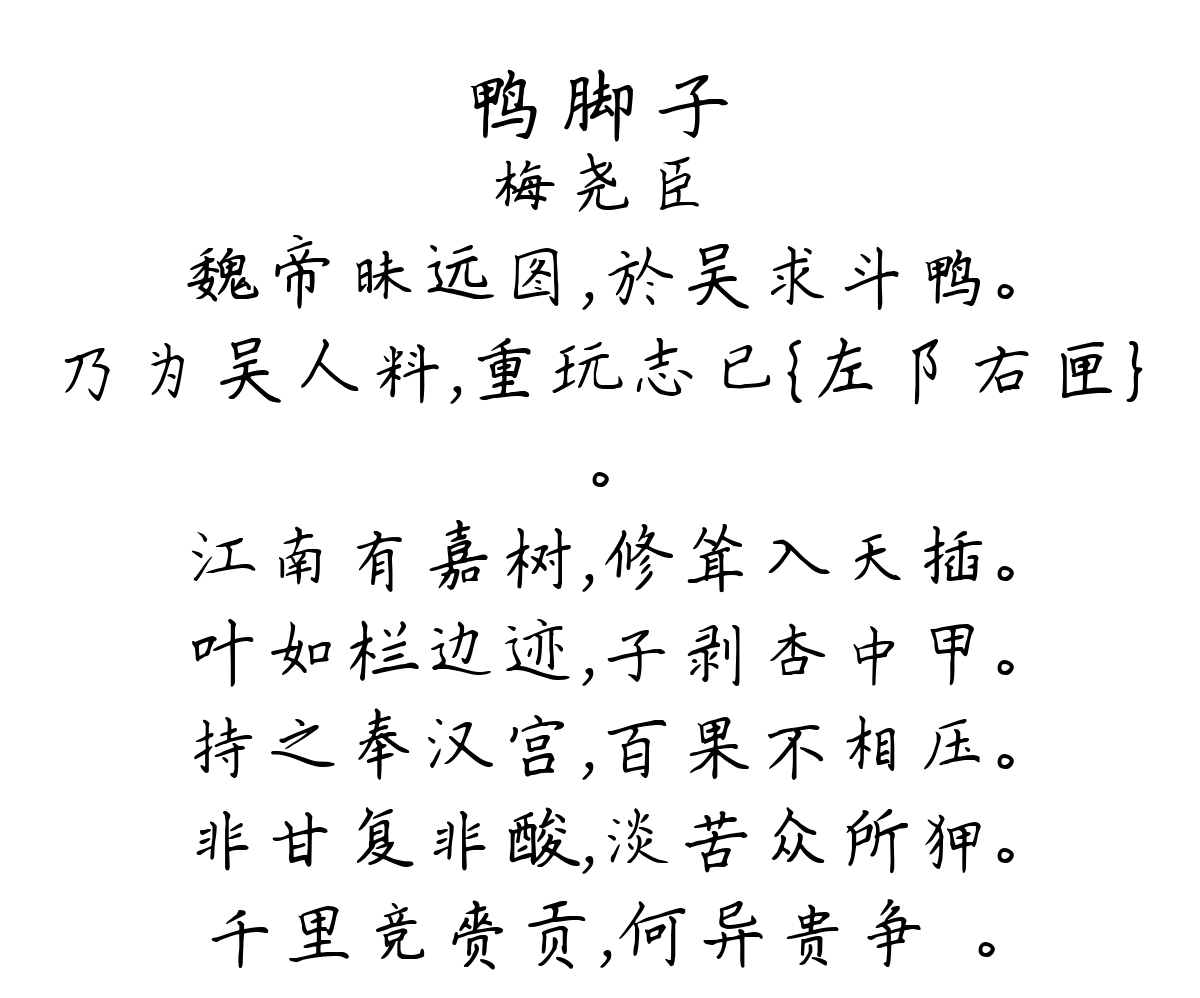 鸭脚子
梅尧臣
魏帝昧远图,於吴求斗鸭。
乃为吴人料,重玩志已{左阝右匣}
。
江南有嘉树,修耸入天插。
叶如栏边迹,子剥杏中甲。
持之奉汉宫,百果不相压。
非甘复非酸,淡苦众所狎。
千里竞赍贡,何异贵争 。